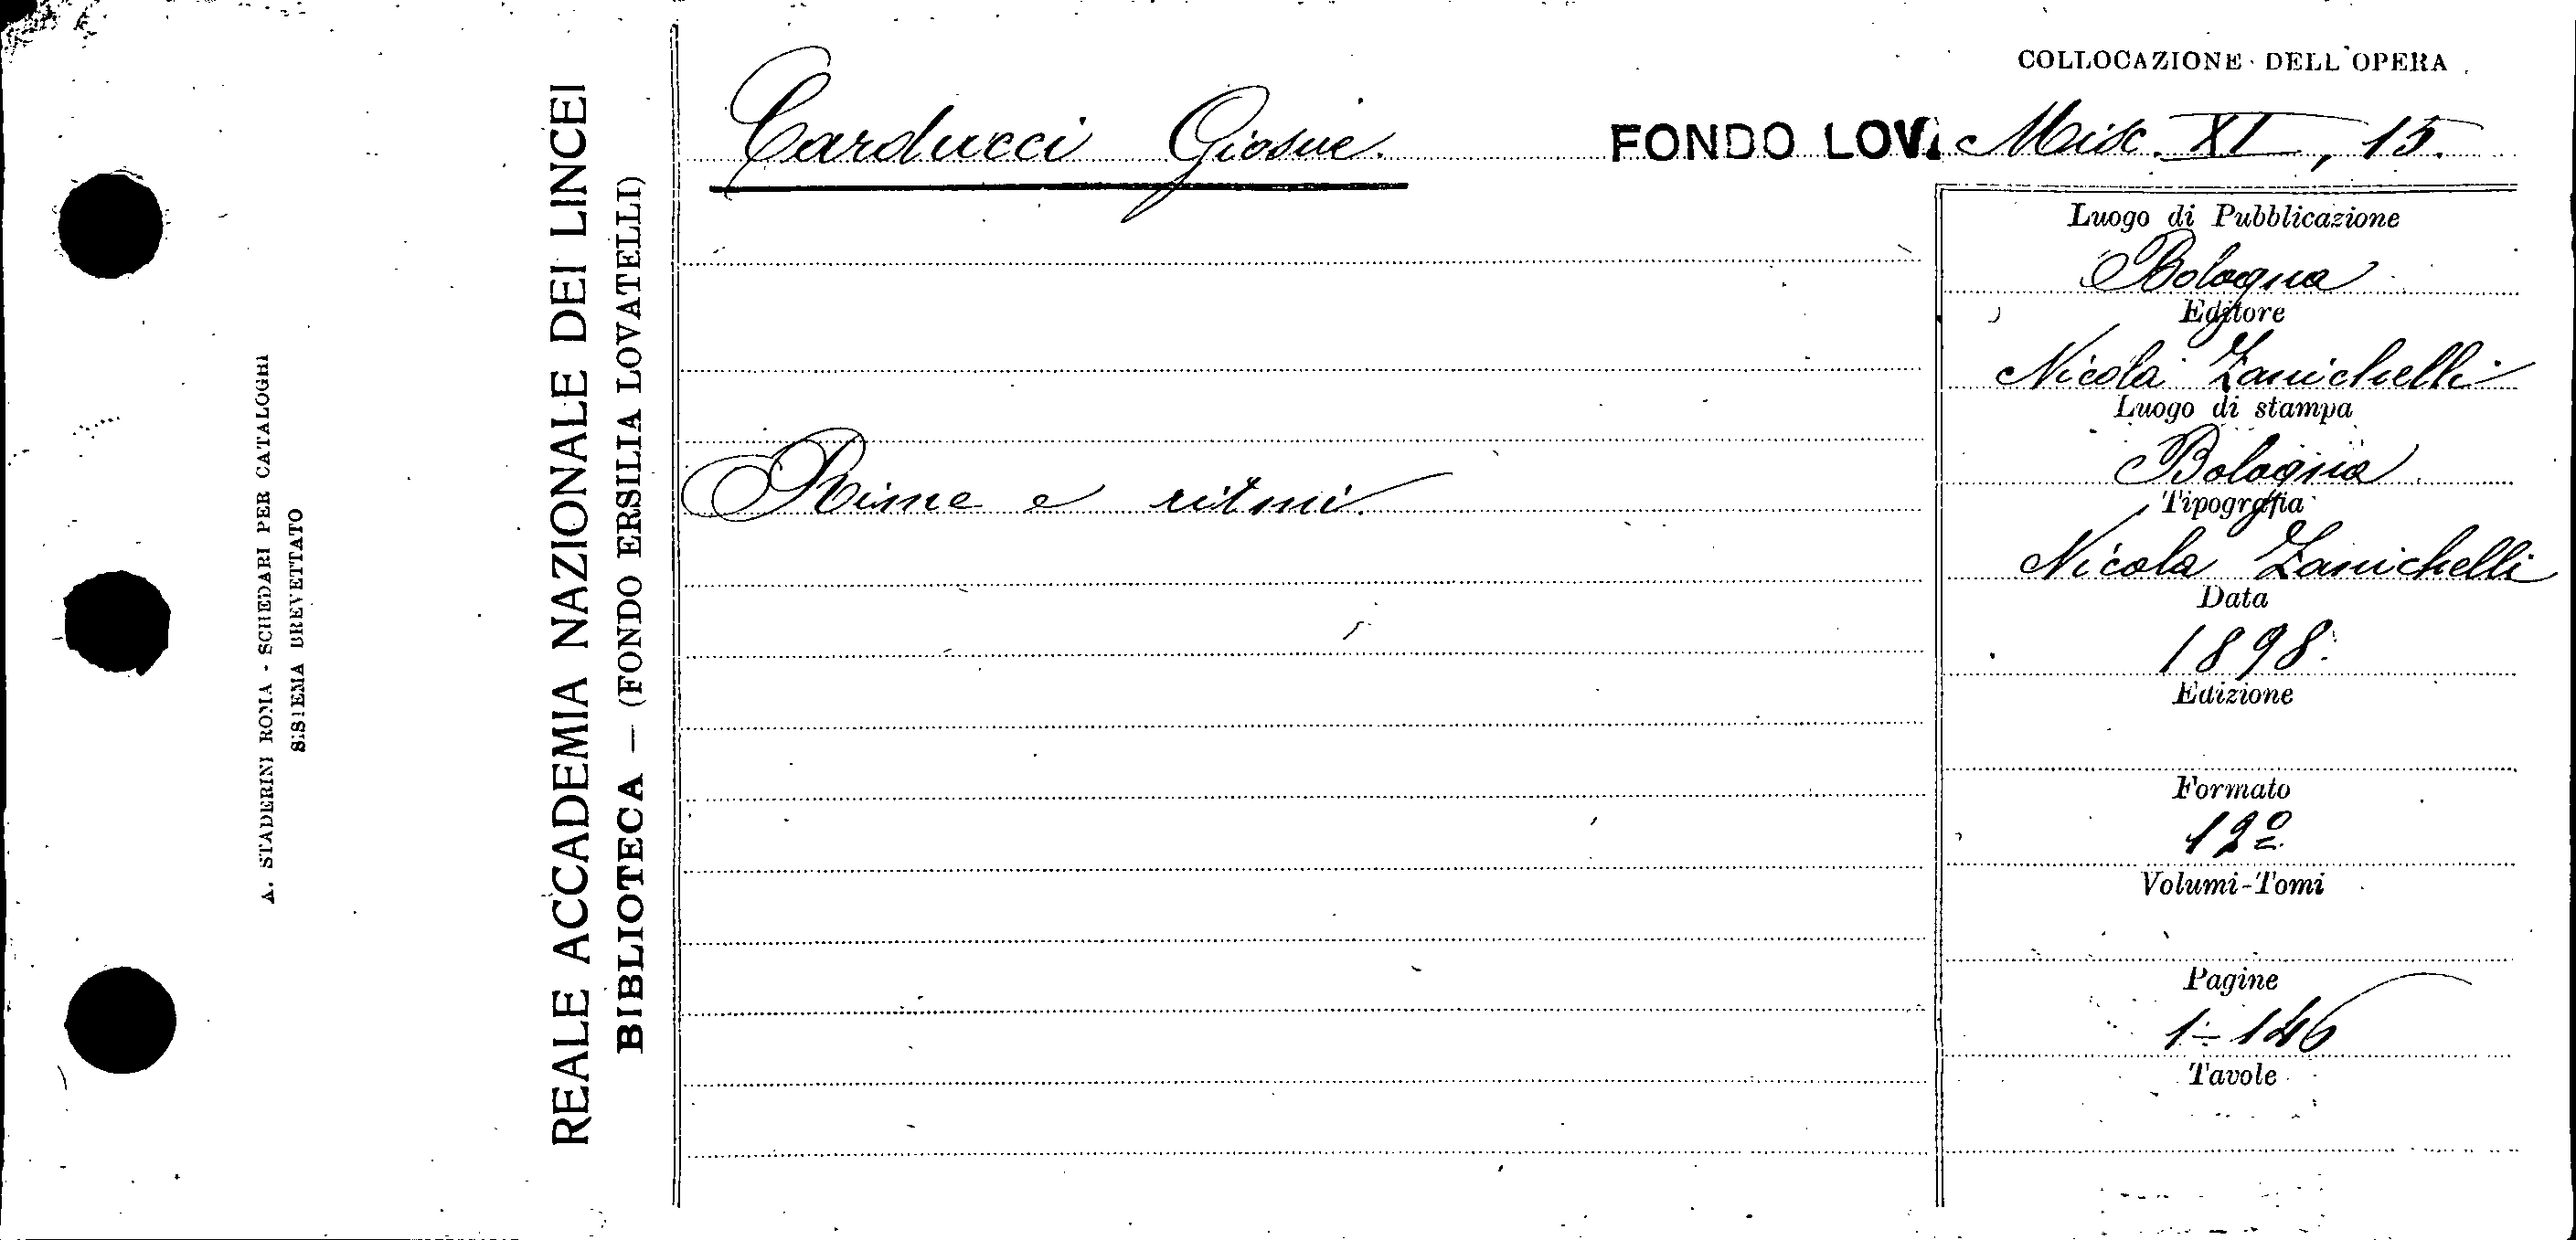 A. STADERINI ROMA - SCHEDARI PER CATALOGHI
SISTEMA BREVETTATO
REALE ACCADEMIA NAZIONALE DEI LINCEI
BIBLIOTECA — (FONDO ERSILIA LOVATELLI)
COLLOCAZIONE DELL'OPERA
Carducci Giosue. FONDO LOV. Misc. XI, 15.
Luogo di Pubblicazione
Bologna
Editore
Nicola Zanichelli
Luogo di stampa
Bologna
Rime e ritmi.
Tipografia
Nicola Zanichelli
Data
1898.
Edizione
Formato
12º
Volumi-Tomi
Pagine
1-146
Tavole